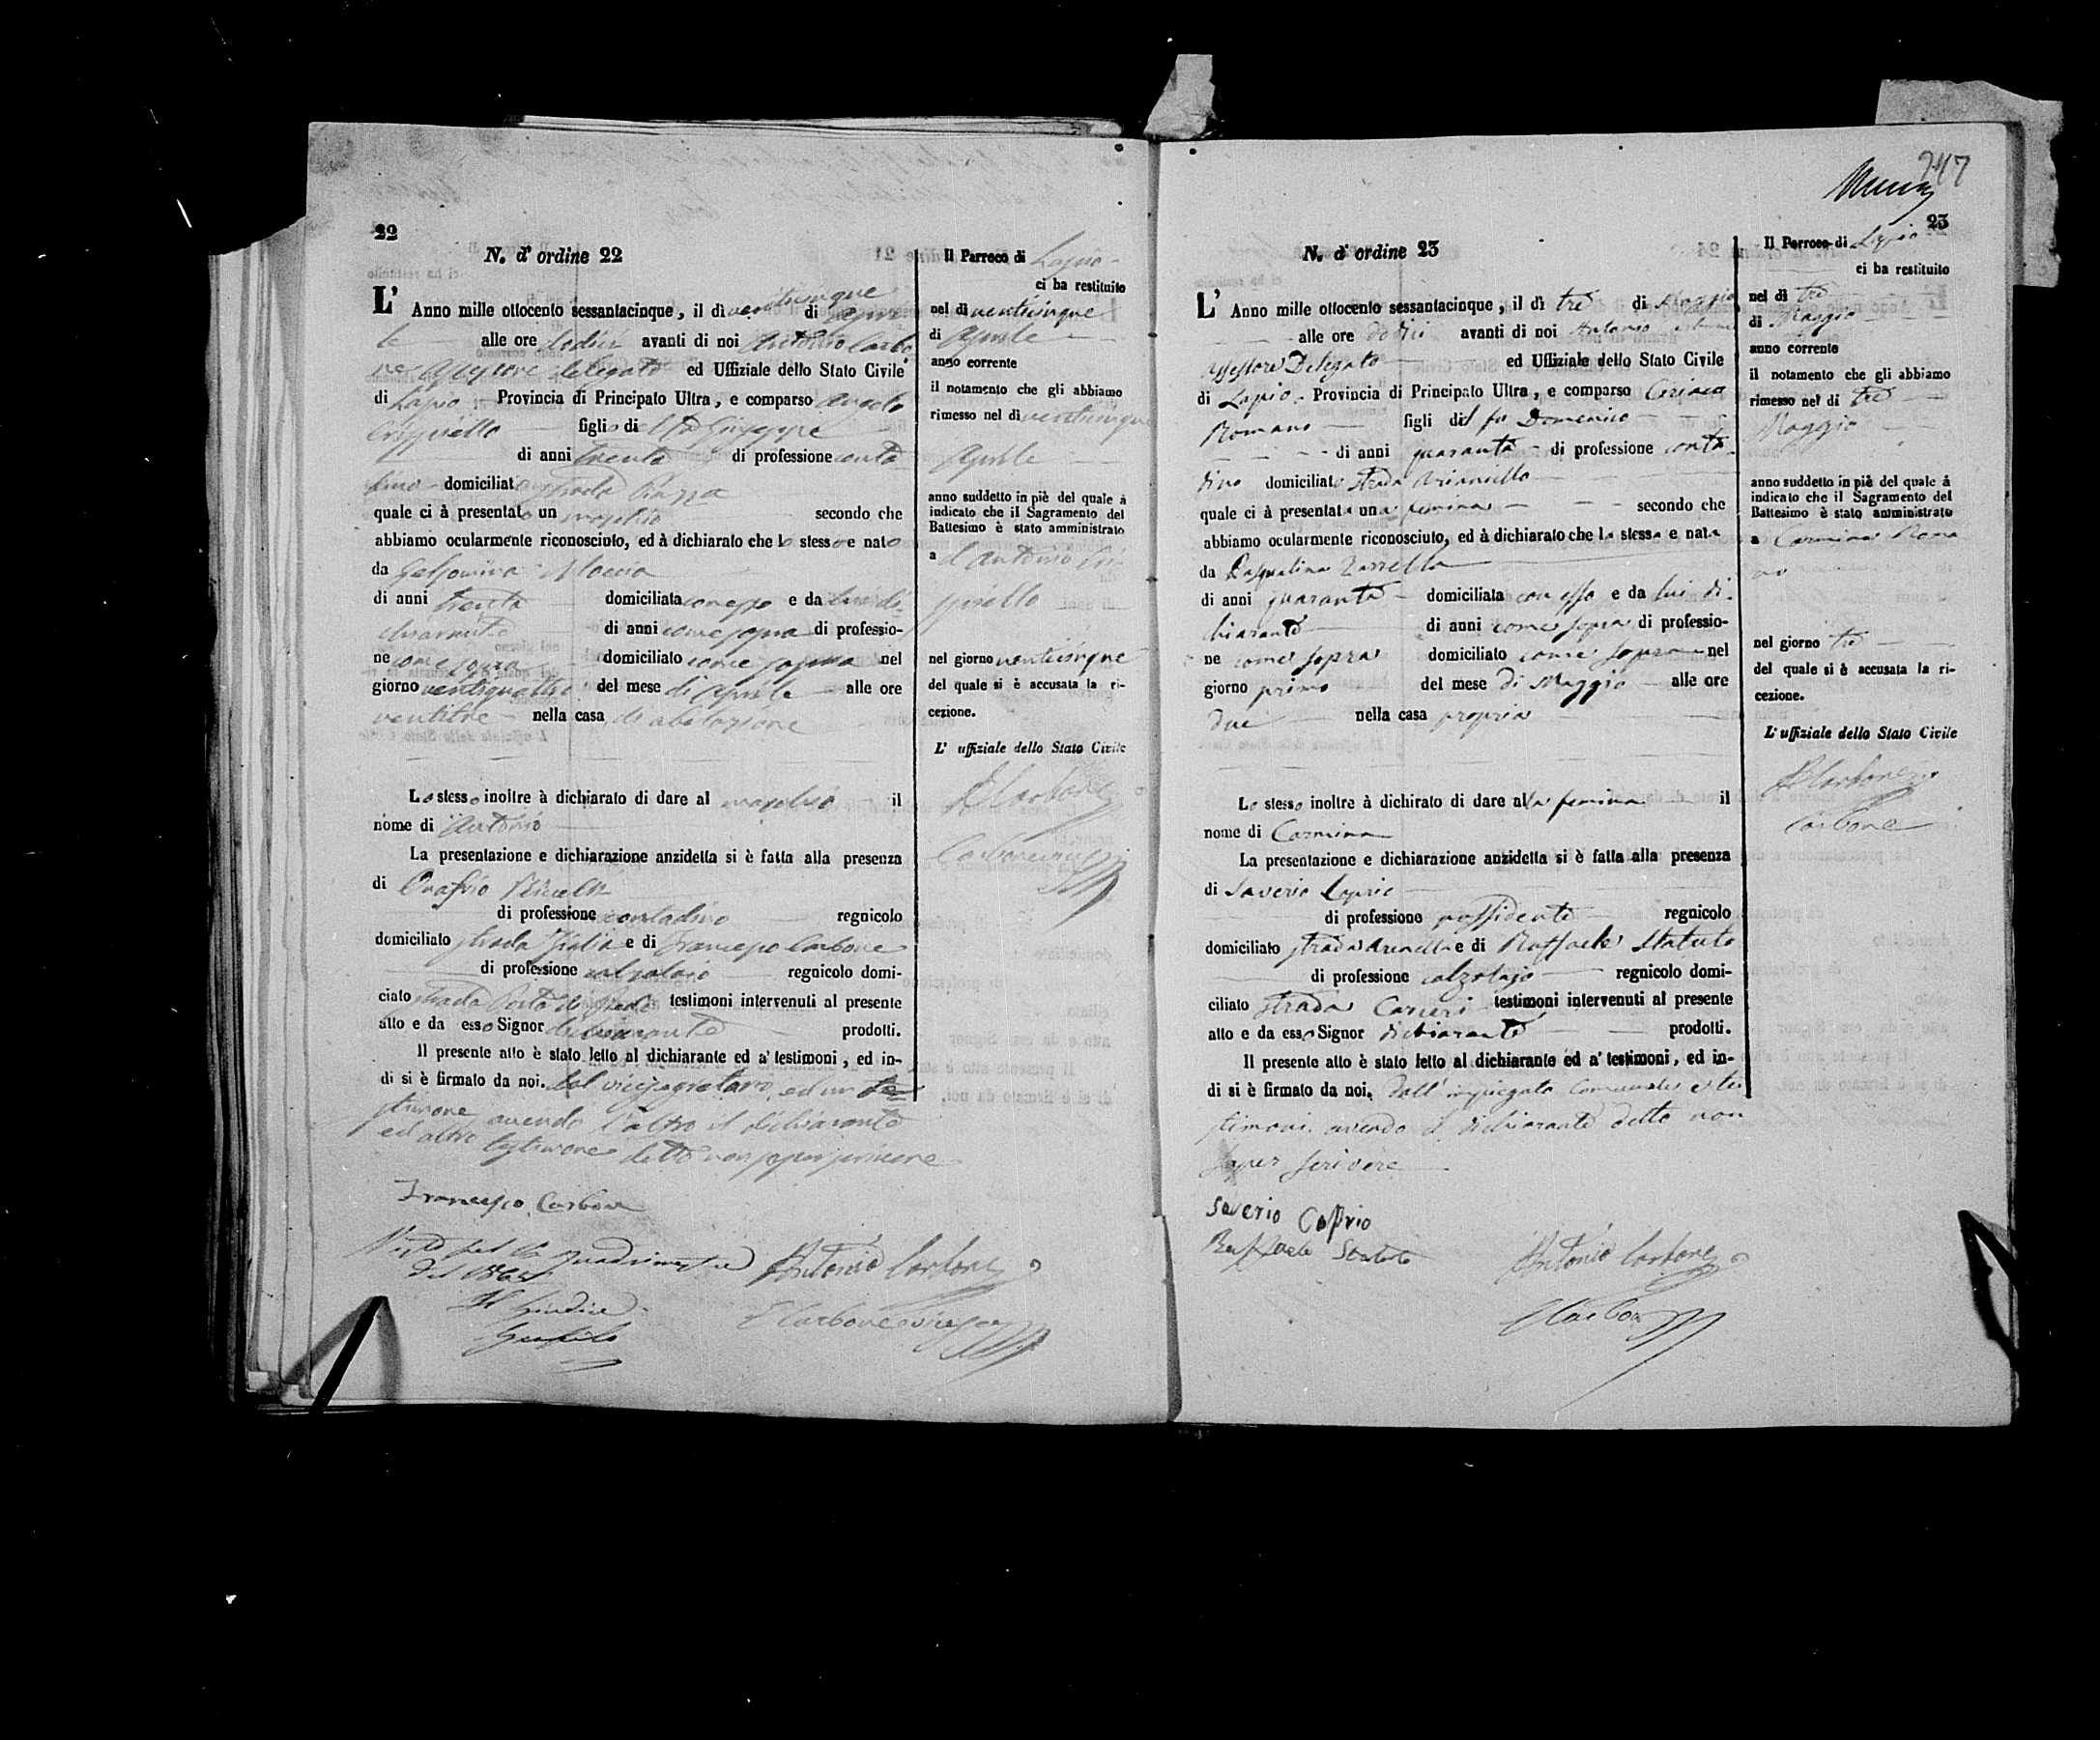 22
N. d' ordine 22
L' Anno mille ottocento sessantacinque, il dì venticinque di Apri
le alle ore dodici avanti di noi Antonio Carbo
ne Assessore delegato ed Uffiziale dello Stato Civile
di Lapio Provincia di Principato Ultra, e comparso Angelo
figlio di Giuseppe
di anni trenta di professione conta
dino domiciliato strada Piazza
quale ci à presentato un maschio secondo che
abbiamo ocularmente riconosciuto, ed à dichiarato che lo stesso e nato
da Gelsomina
di anni trenta domiciliata con esso e da lui di
chiarante di anni come sopra di professio-
ne come sopra domiciliato come sopra nel
giorno ventiquattro del mese di Aprile alle ore
ventitre nella casa di abitazione
Lo stesso inoltre à dichiarato di dare al maschio il
nome di Antonio
La presentazione e dichiarazione anzidetta si è fatta alla presenza
di Onofrio
di professione contadino regnicolo
domiciliato strada e di Francesco Carbone
di professione calzolaio regnicolo domi-
ciato strada Porta di testimoni intervenuti al presente
atto e da esso Signor dichiarante prodotti.
Il presente atto è stato letto al dichiarante ed a' testimoni, ed in-
di si è firmato da noi. dal vicesegretario, ed un te
stimone avendo l'altro il dichiarante
ed altro testimone detto non saper scrivere
Francesco Carbone
Visto pel quadrimestre
del 1865
Il Giudice
Antonio Carbone
Carbone
Il Parroco di Lapio
ci ha restituito
nel dì venticinque
di Aprile
anno corrente
il notamento che gli abbiamo
rimesso nel dì venticinque
Aprile
anno suddetto in piè del quale à
indicato che il Sagramento del
Battesimo è stato amministrato
a Antonio
nel giorno venticinque
del quale si è accusata la ri-
cezione.
L' uffiziale dello Stato Civile
A Carbone
Carbone
247
23
N. d' ordine 23
L' Anno mille ottocento sessantacinque, il dì tre di Maggio
alle ore dodici avanti di noi Antonio Carbone
Assessore Delegato ed Uffiziale dello Stato Civile
di Lapio Provincia di Principato Ultra, e comparso Ciriaco
Romano figli del fu Domenico
di anni quaranta di professione conta
dino domiciliato strada Arianiello
quale ci à presentata una femina secondo che
abbiamo ocularmente riconosciuto, ed à dichiarato che la stessa e nata
da Pasqualina Zarrella
di anni quaranta domiciliata con esso e da lui di
chiarante di anni come sopra di professio-
ne come sopra domiciliato come sopra nel
giorno primo del mese di Maggio alle ore
due nella casa propria
Lo stesso inoltre à dichirato di dare alla femina il
nome di Carmina
La presentazione e dichiarazione anzidetta si è fatta alla presenza
di Saverio Caprio
di professione possidente regnicolo
domiciliato strada e di Raffaele Statuto
di professione calzolajo regnicolo domi-
ciliato strada Carrieri testimoni intervenuti al presente
atto e da esso Signor dichiarante prodotti.
Il presente atto è stato letto al dichiarante ed a' testimoni, ed in-
di si è firmato da noi. dall' impiegato Comunale e te
stimoni avendo il dichiarante detto non
saper scrivere
Saverio Caprio
Raffaele Statuto
Antonio Carbone
Carbone
Il Parroco di Lapio
ci ha restituito
nel dì tre
di Maggio
anno corrente
il notamento che gli abbiamo
rimesso nel dì tre
Maggio
anno suddetto in piè del quale à
indicato che il Sagramento del
Battesimo è stato amministrato
a Carmina Roma
no
nel giorno tre
del quale si è accusata la ri-
cezione.
L' uffiziale dello Stato Civile
A Carbone
Carbone